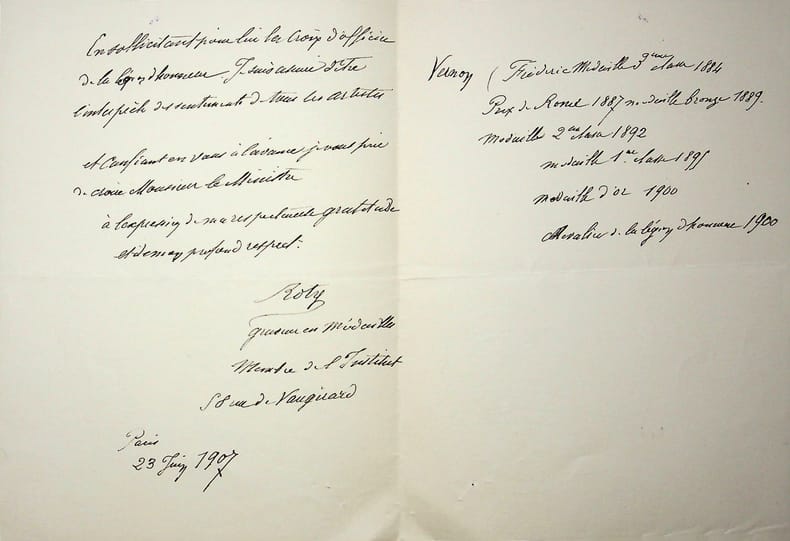 En sollicitant pour lui la croix d'officier
de la légion d'honneur Je suis assuré d'être
l'interprèt des sentiments de tous les artistes
et confiant en vous à l'avance je vous prie
de croire Monsieur le Ministre
à l'expression de ma respectueuse gratitude
et de mon profond respect.
Roty
graveur en Médailles
Membre de l'Institut
58 rue de Vaugirard
Paris
23 Juin 1907
Vernon (Frédéric Médaille 3eme classe 1884
Prix de Rome 1887 médaille bronze 1889.
Médaille 2eme classe 1892
médaille 1ere classe 1895
médaille d'or 1900
Chevalier de la légion d'honneur 1900